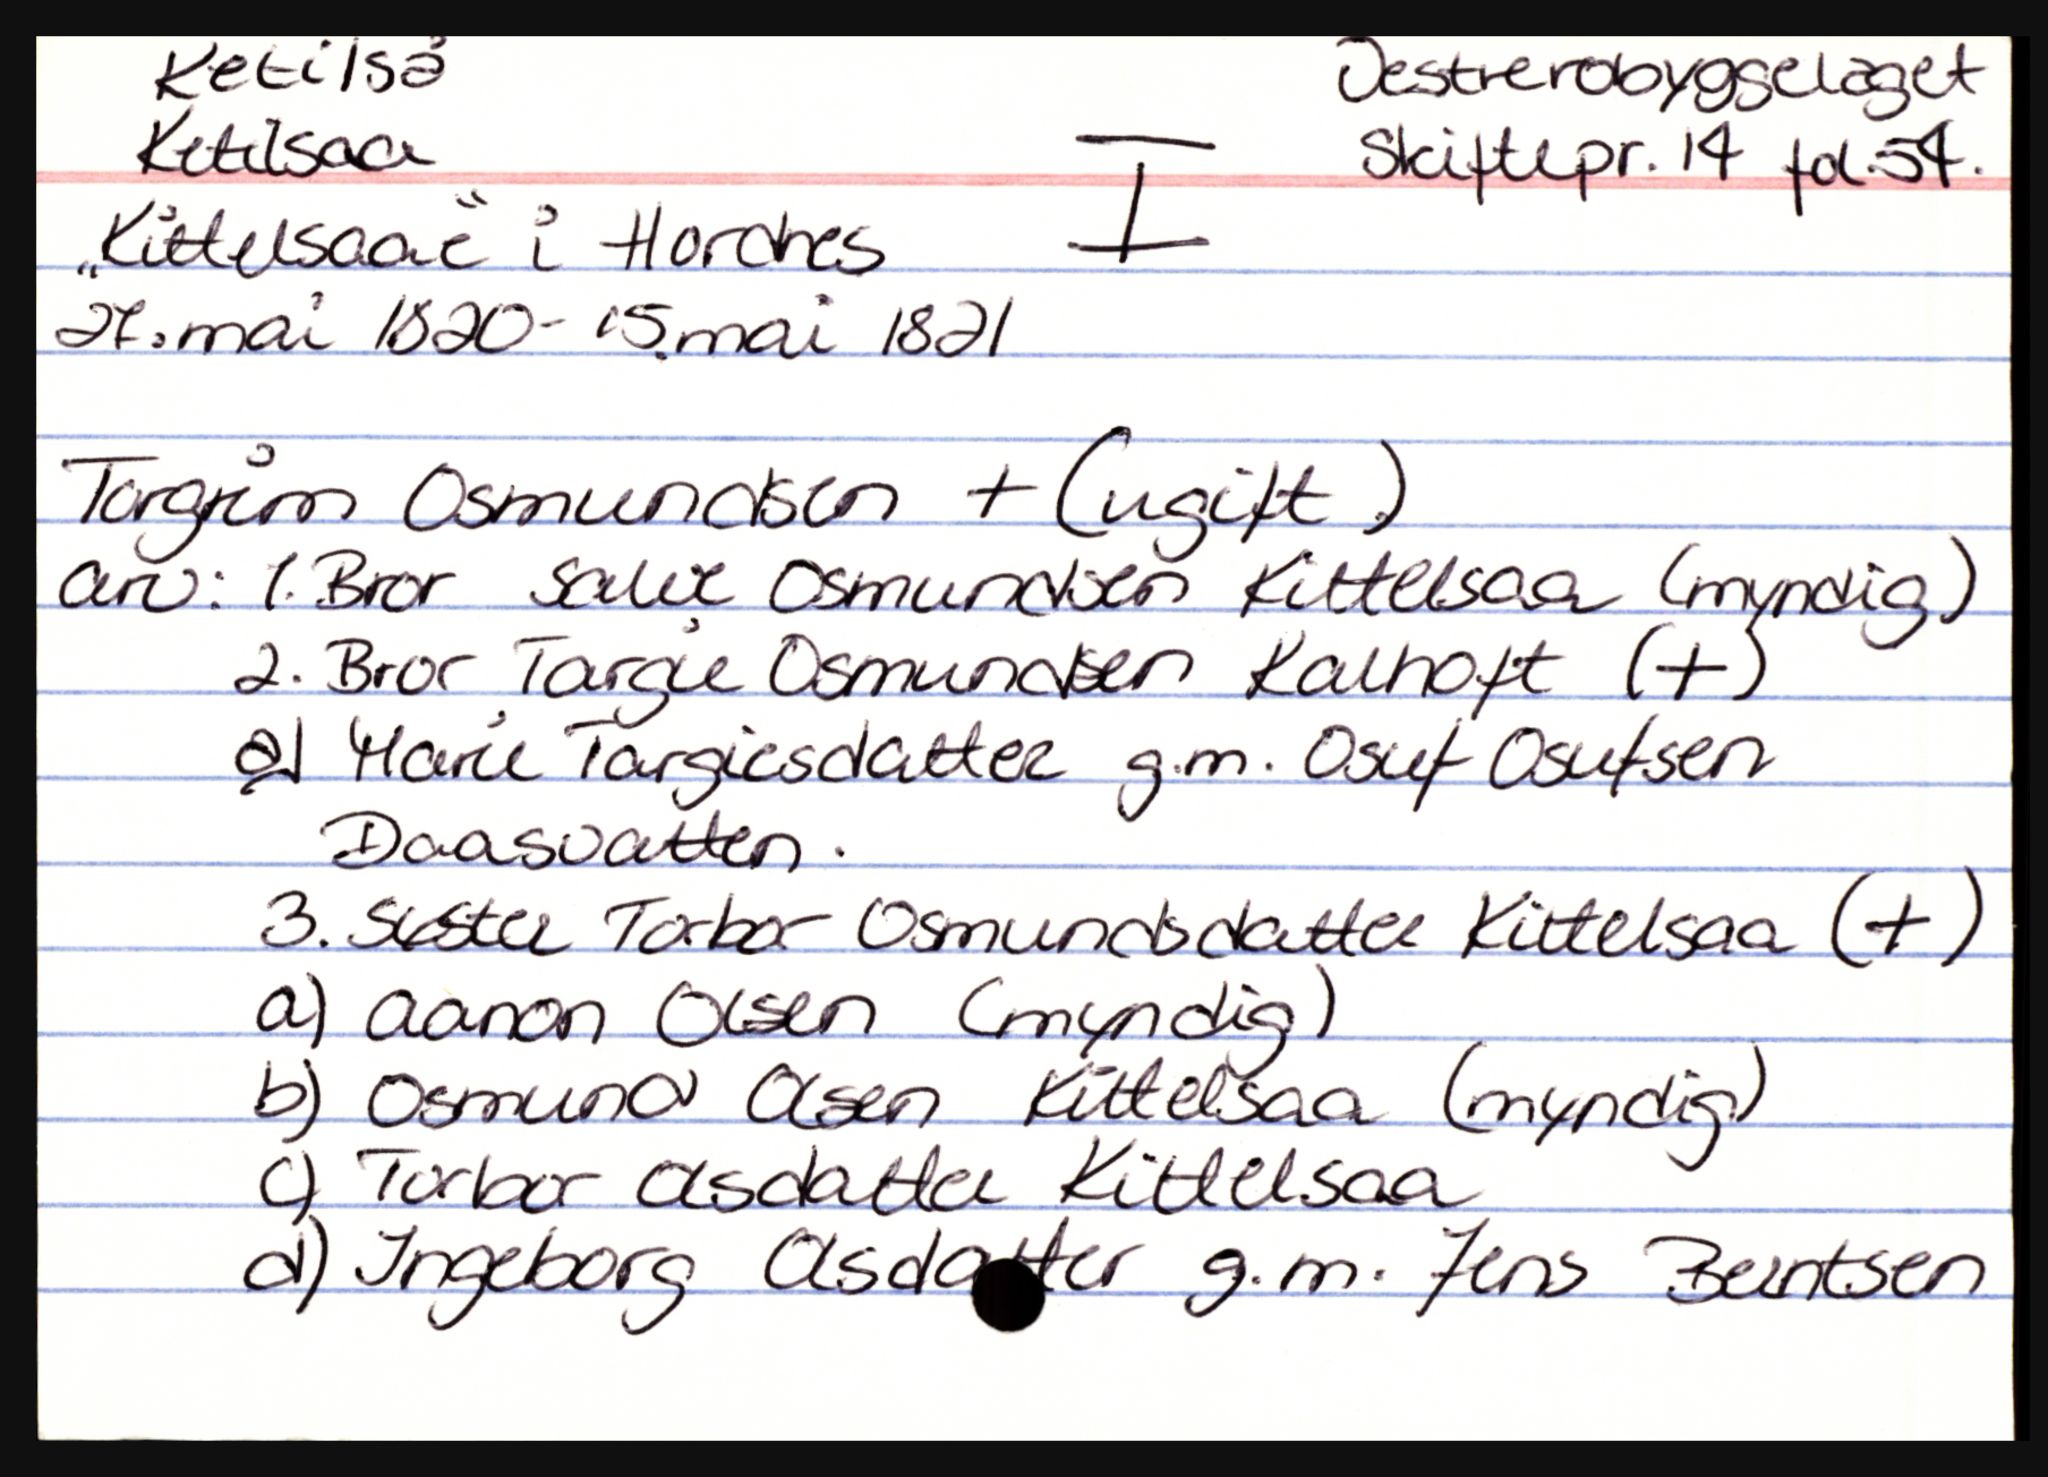 Ketilså
Vestreråbyggelaget
Ketilsaa
I
Skiftepr. 14 fol. 54.
„Kittelsaae“ i Hordnes
27. mai 1820 - 15. mai 1821
Torgrim Osmundsen + (ugift)
arv: 1. Bror Salve Osmundsen Kittelsaa (myndig)
2. Bror Targie Osmundsen Kalhoft (+)
a) Marie Targiesdatter g.m. Osuf Osufsen
Daasvatten.
3. Søster Torbor Osmundsdatter Kittelsaa (+)
a) Aanon Olsen (myndig)
b) Osmund Olsen Kittelsaa (myndig)
c) Torbor Olsdatter Kittelsaa
d) Ingeborg Olsdatter g.m. Jens Berntsen